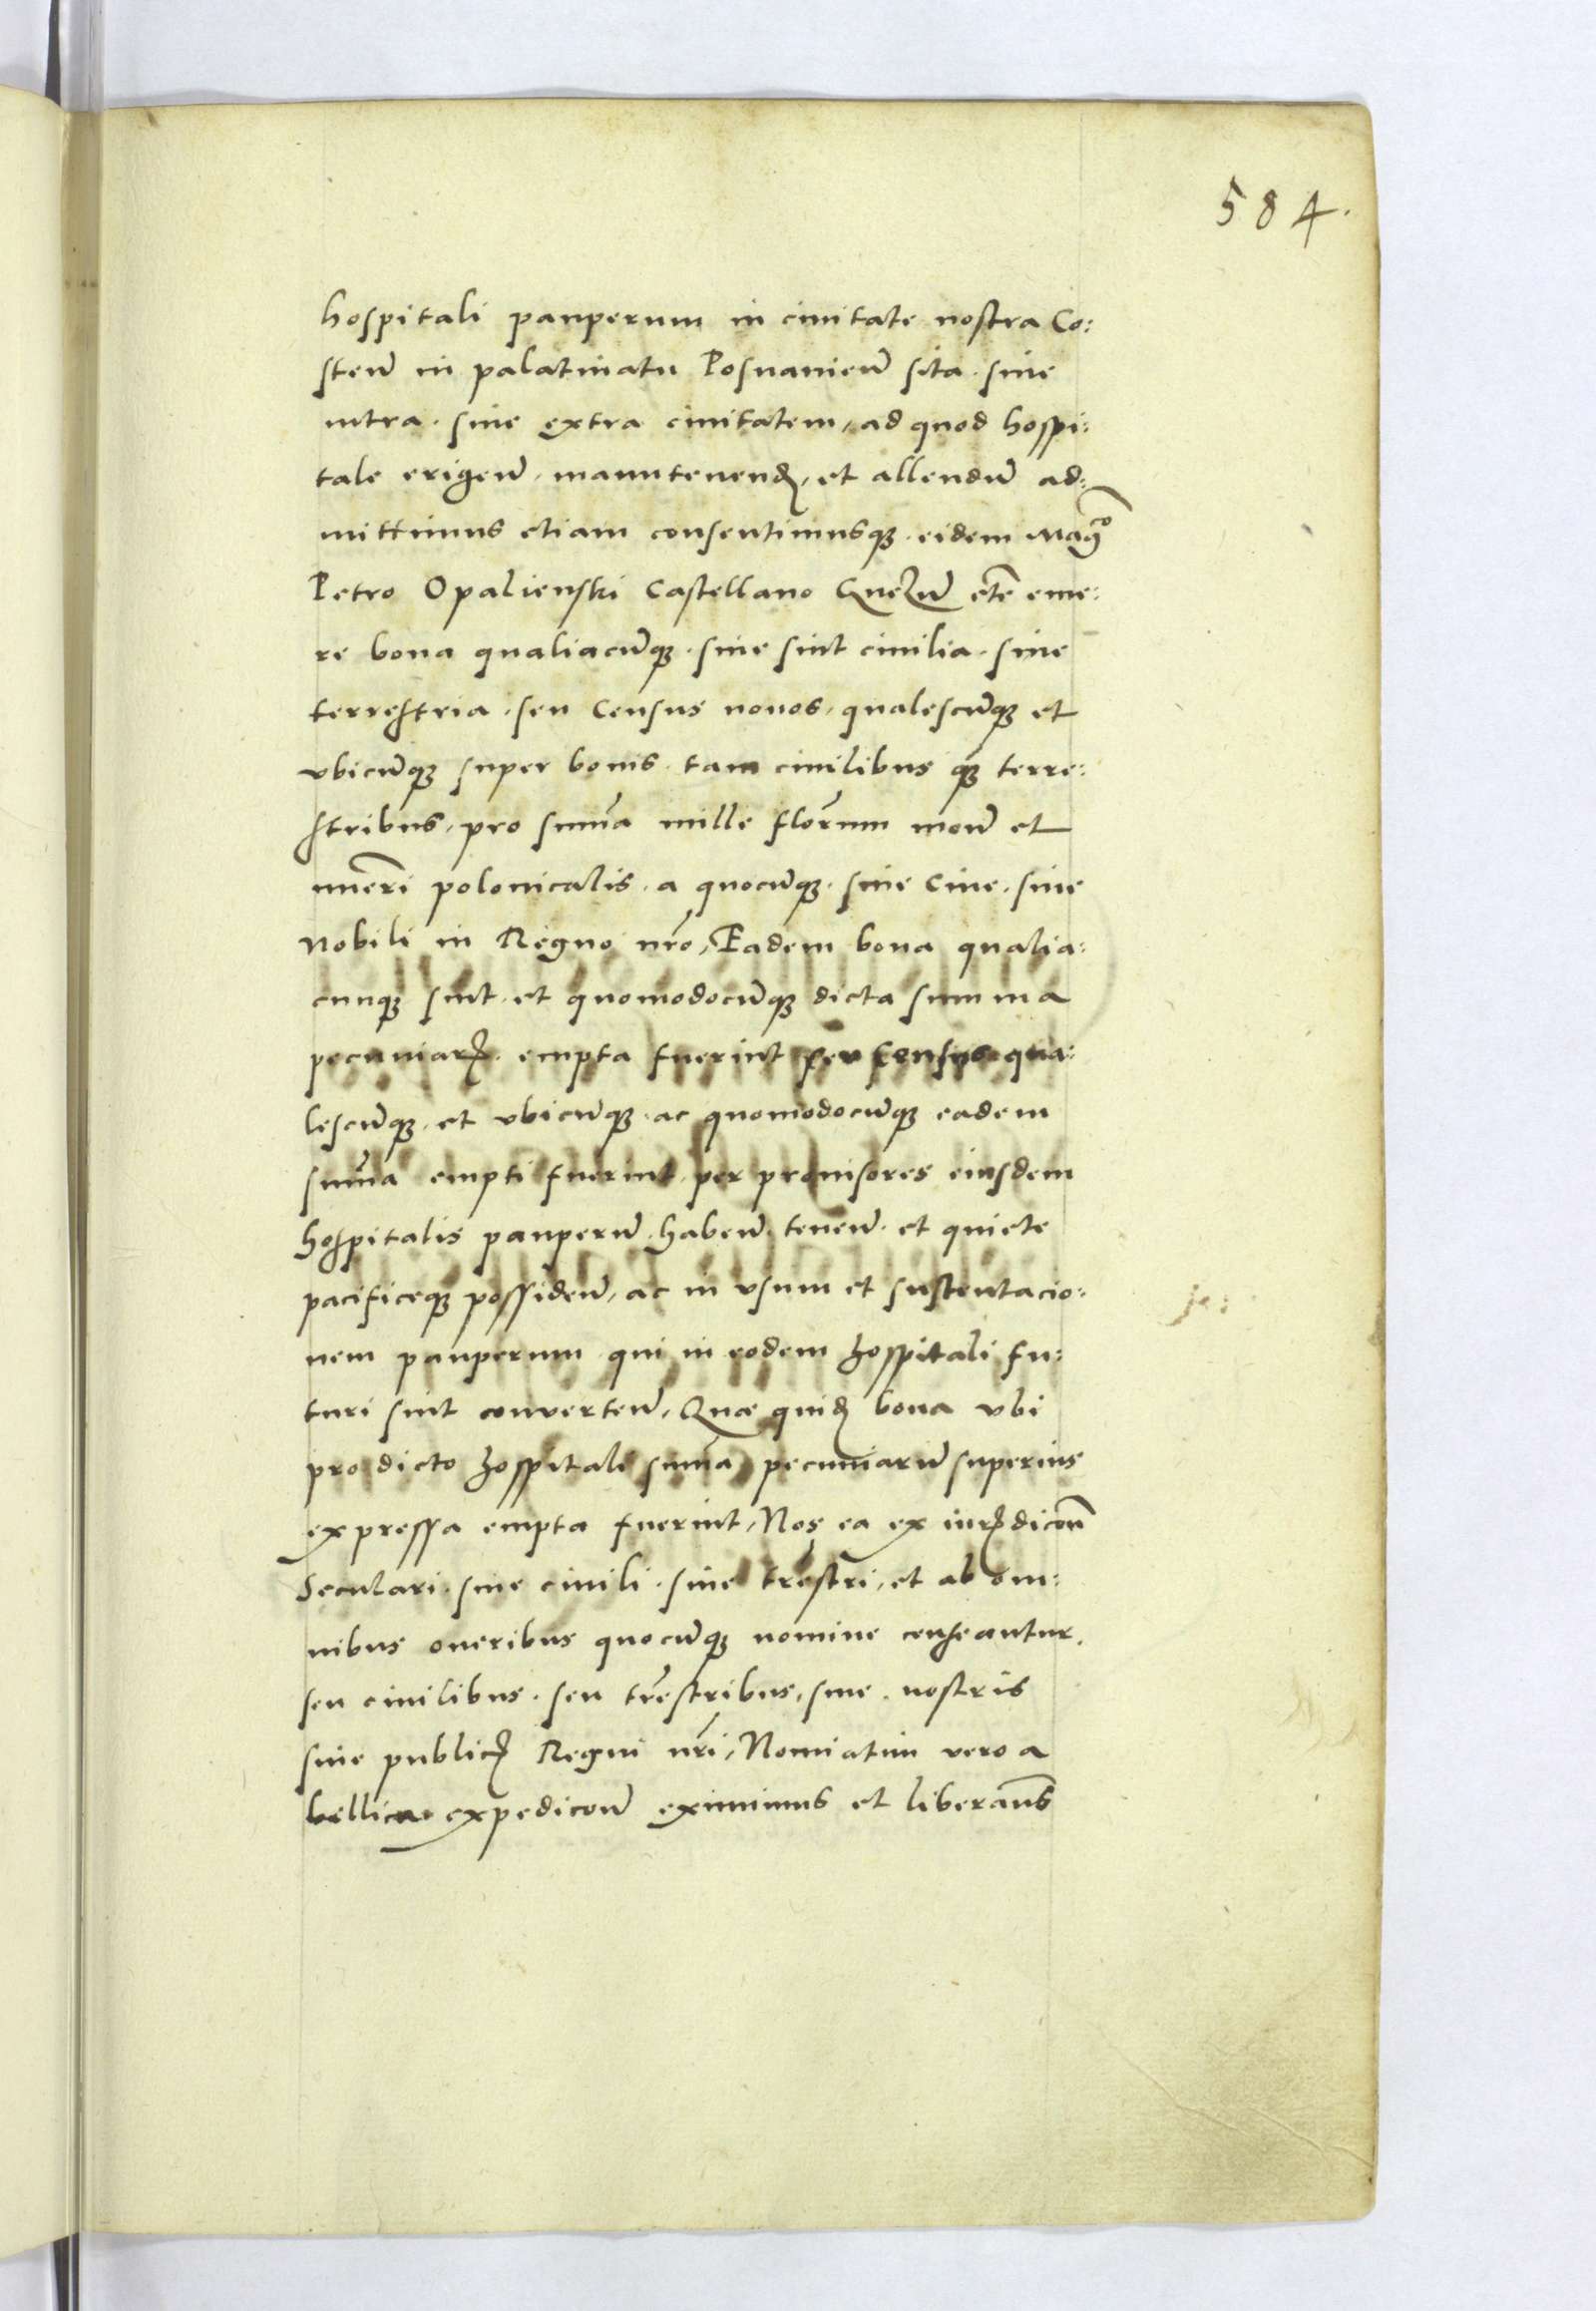 584.
hospitali pauperum in ciuitate nostra Co:
sten̄ in palatinatu Posnanien̄ sita. siue
intra. siue extra ciuitatem, ad quod hospi:
tale erigen̄. manutenend̄, et allendū ad:
mittimus etiam consentimusq̧. eidem Magco
Petro Opalienski Castellano Gnezn̄ etc̄ eme:
re bona qualiacūq̧. siue sint ciuilia. siue
terrestria. seu Census nouos. qualescūq̧ et
vbicūq̧ super bonis. tam ciuilibus q̧ terre:
stribus, pro sum̄a mille flor̄um mon̄ et
num̄eri polonicalis. a quocūq̧. siue Ciue. siue
Nobili in Regno nr̄o, Eadem bona qualia:
cunq̧ sint. et quomodocūq̧ dicta summa
pecuniar̄. empta fuerint seu Census qua:
lescūq̧. et vbicūq̧. ac quomodocūq̧ eadem
sum̄a empti fuerint. per prouisores eiusdem
hospitalis pauperū. haben̄. tenen̄. et quiete
pacificeq̧ possiden̄, ac in vsum et sustentacio:
nem pauperum qui in eodem hospitali fu:
turi sint conuerten̄, Quæ quid̄ bona vbi
pro dicto hospitali sum̄a pecuniarū superius
expressa empta fuerint, Nos ea ex iurisdicōn̄
Seculari. siue ciuili. siue tr̄estri, et ab om:
nibus oneribus quocūq̧ nomine censeantur.
seu ciuilibus. seu tr̄estribus, siue. nostris
siue publicis Regni nr̄i, Nominatim vero a
bellica expedicōn̄ eximimus et liberam̄s